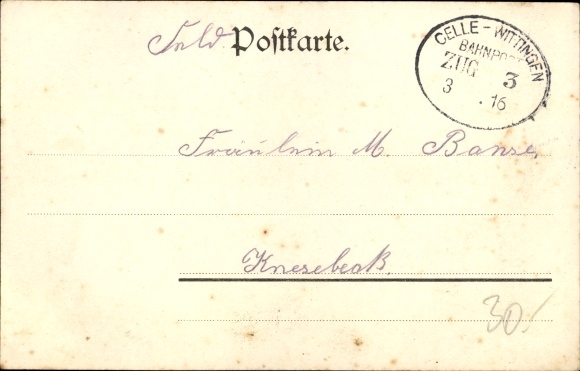 Feld Postkarte.
CELLE - WITTINGEN
BAHNPOST
ZUG 3
3 . 16
Fräulein M. Banse,
Knesebeck.
30.-